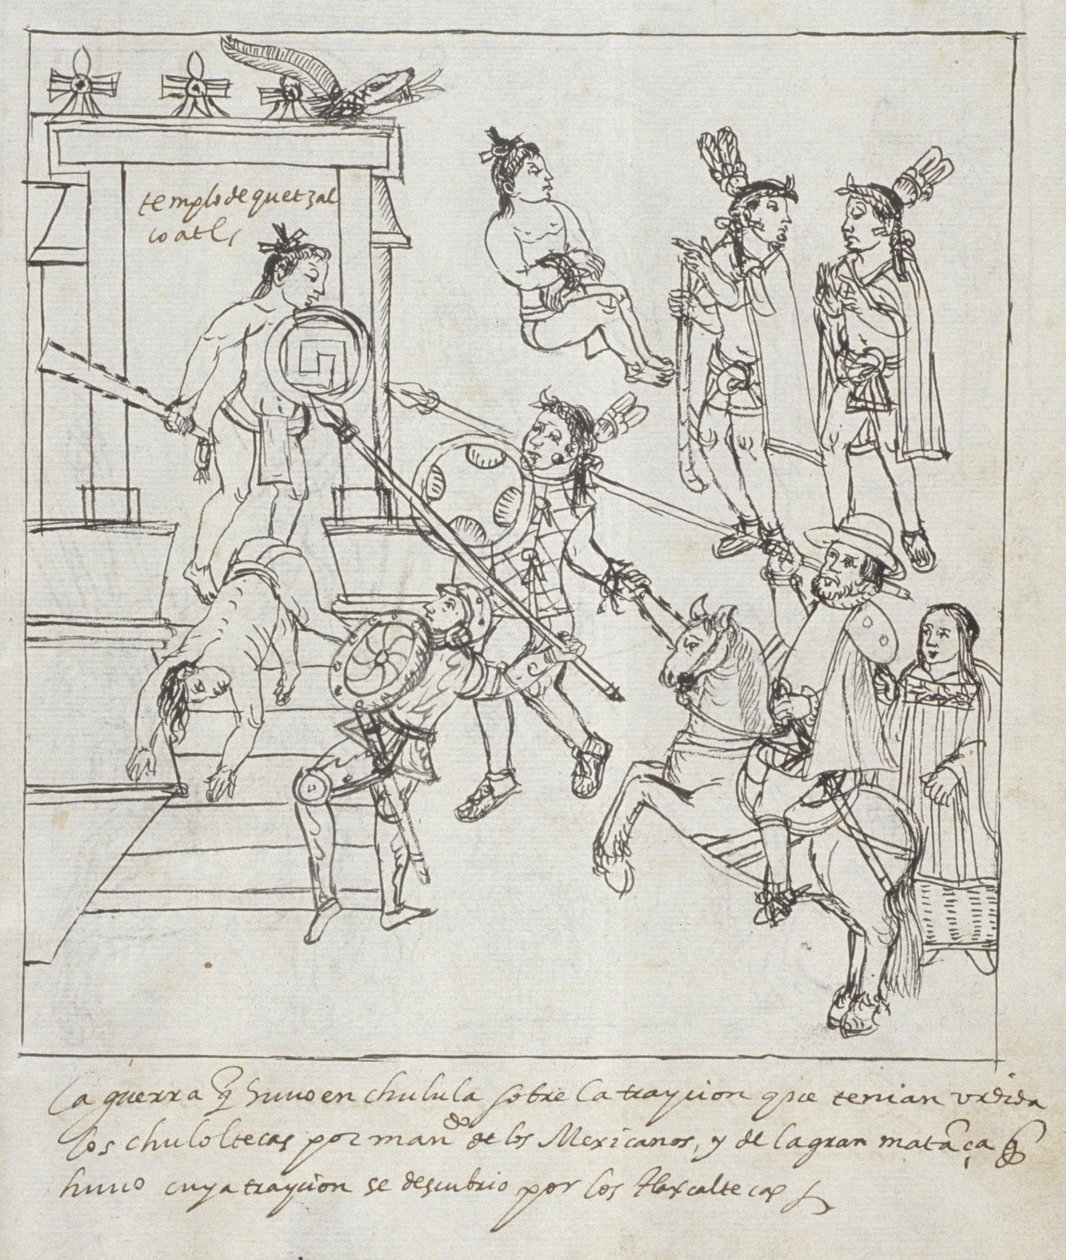 templo de quetzal
coatl
La guerra q̃ huuo en chulula sobre la trayción que tenian vrdida
los chuloltecas por man.do de los Mexicanos, y de la gran matãça q̃
huuo cuya trayción se descubrio por los tlaxcaltecas